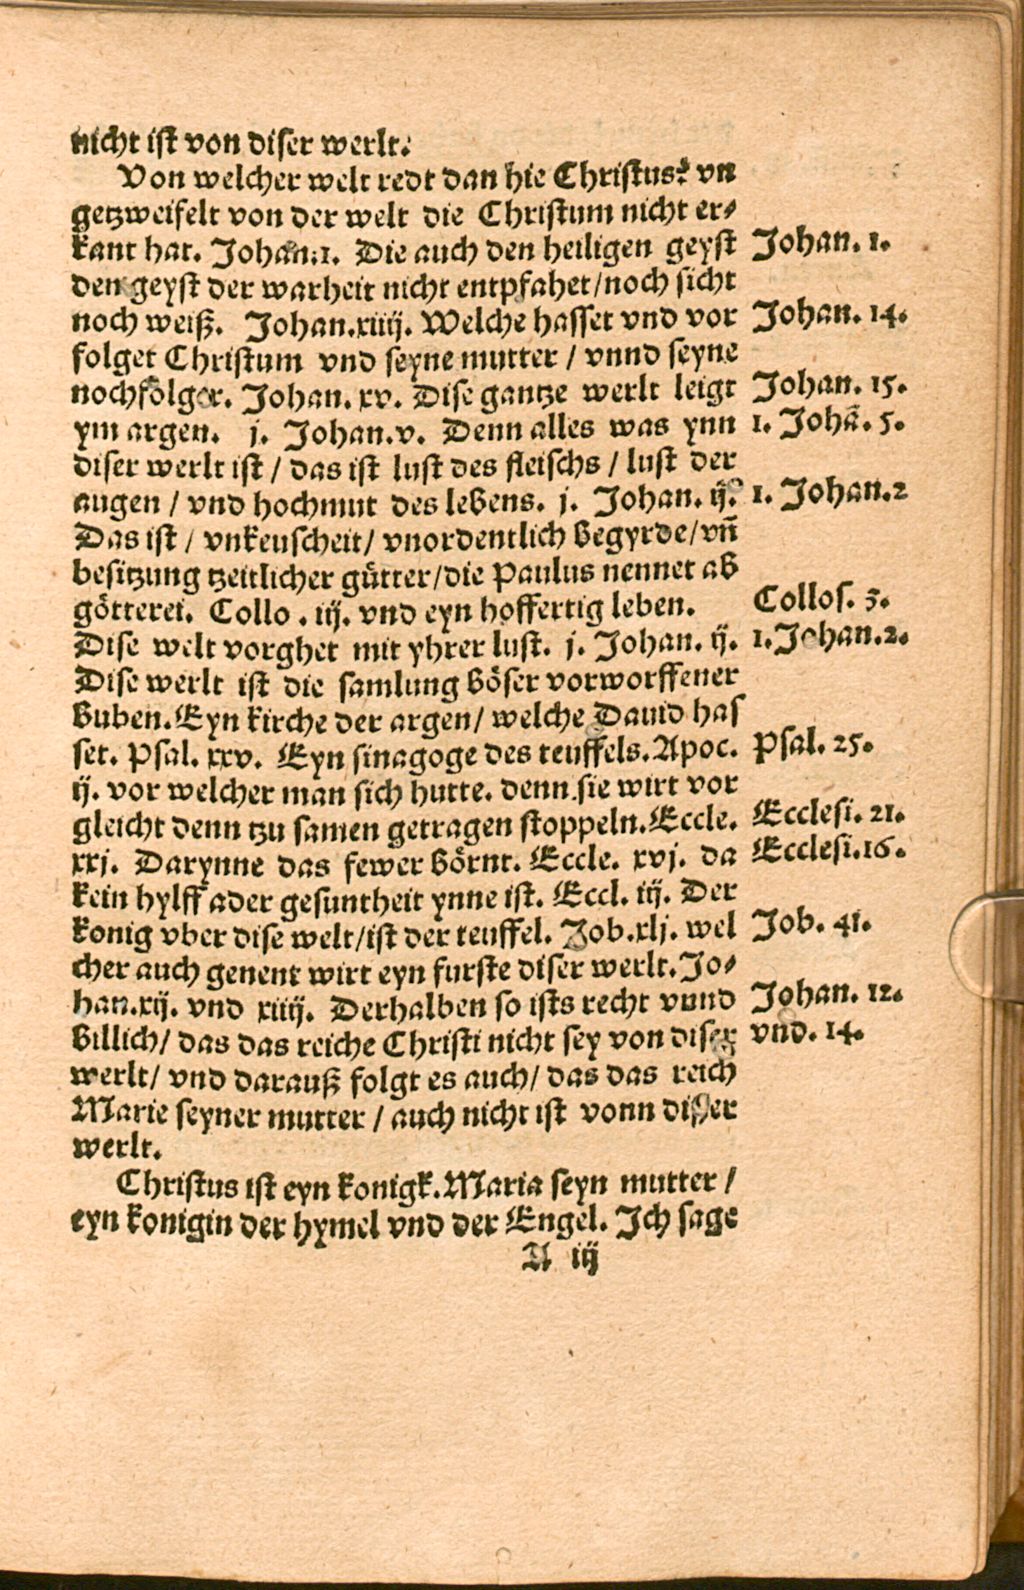 nicht ist von diser werlt.
Von welcher welt redt dan hie Christus? vn
getzweifelt von der welt die Christum nicht er⸗
kant hat. Johan.1. Die auch den heiligen geyst
den geyst der warheit nicht entpfahet/noch sicht
noch weiß. Johan.xiiij. Welche hasset vnd vor
folget Christum vnd seyne mutter / vnnd seyne
nochfolger. Johan. xv. Dise gantze werlt leigt
ym argen. j. Johan.v. Denn alles was ynn
diser werlt ist / das ist lust des fleischs / lust der
augen / vnd hochmut des lebens. j. Johan. ij.
Das ist / vnkeuscheit/ vnordentlich begyrde/vn̄
besitzung tzeitlicher gütter/die Paulus nennet ab
götterei. Collo . iij. vnd eyn hoffertig leben.
Dise welt vorghet mit yhrer lust. j. Johan. ij.
Dise werlt ist die samlung böser vorworffener
buben.Eyn kirche der argen/ welche Dauid has
set. Psal. xxv. Eyn sinagoge des teuffels.Apoc.
ij. vor welcher man sich hutte. denn sie wirt vor
gleicht denn tzu samen getragen stoppeln.Eccle.
xxj. Darynne das fewer börnt. Eccle. xvj. da
kein hylff ader gesuntheit ynne ist. Eccl. iij. Der
konig vber dise welt/ist der teuffel. Job.xlj. wel
cher auch genent wirt eyn furste diser werlt.Jo⸗
han.xij. vnd xiiij. Derhalben so ists recht vnnd
billich/ das das reiche Christi nicht sey von diser
werlt/ vnd darauß folgt es auch/ das das reich
Marie seyner mutter / auch nicht ist vonn diser
werlt.
Christus ist eyn konigk.Maria seyn mutter /
eyn konigin der hymel vnd der Engel. Jch sage
A iij
Johan. 1.
Johan. 14.
Johan. 15.
1. Johā. 5.
1. Johan.2
Collos. 3.
1.Johan.2.
Psal. 25.
Ecclesi. 21.
Ecclesi.16.
Job. 41.
Johan. 12.
vnd. 14.